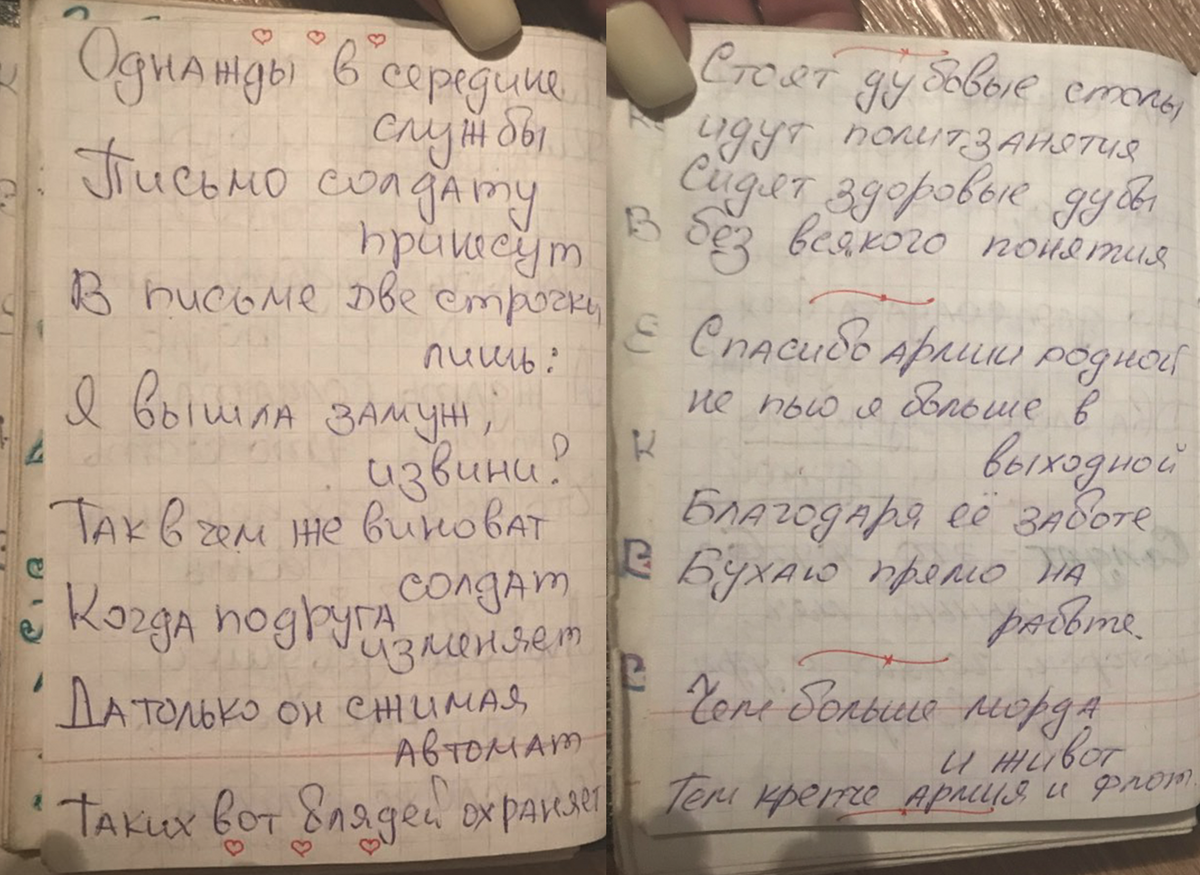 Однажды в середине
службы
Письмо солдату
принесут
В письме две строчки
лишь:
Я вышла замуж,
извини?
Так в чем же виноват
солдат
Когда подруга
изменяет
Да только он сжимая
автомат
Таких вот блядей охраняет
Стоят дубовые столы
идут политзанятия
Сидят здоровые дубы
без всякого понятия
Спасибо армии родной
не пью я больше в
выходной
Благодаря её заботе
Бухаю прямо на
работе.
Чем больше морда
и живот
Тем крепче армия и флот